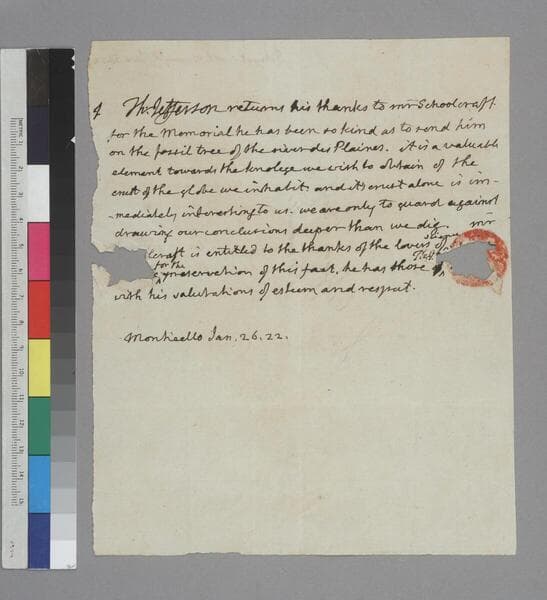 4 Th: Jefferson returns his thanks to mr Schoolcraft
for the Memorial he has been so kind as to send him
on the fossil tree of the river des Plaines. it is a valuable
element towards the knolege we wish to obtain of the
crust of the globe we inhabit, and it's crust alone is im-
-mediately interesting to us. we are only to guard against
drawing our conclusions deeper than we dig. mr
craft is entitled to the thanks of the lovers of science
for the preservation of this fact. he has those
with his salutations of esteem and respect.
Monticello Jan. 26. 22.